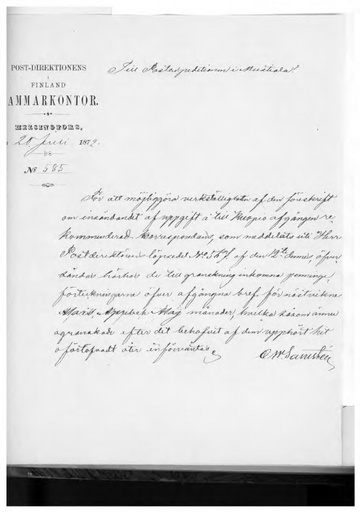 POST-DIREKTIONENS
i
FINLAND
AMMARKONTOR.
HELSINGFORS,
25 Juni 1872.
No 585
Till Postexpeditionen i
För att möjliggöra verkställigheten af den föreskrift
om insändandet af uppgift å till Kuopio afgången re-
kommenderad korrespondens, som meddelats uti Herr
Postdirektörens af den 12te Junii, öfver-
sändas härhos de till granskning inkomna pennings-
förteckningarne öfver afgångna bref för nästvikna
Mars, April och Maj månader, hvilka såsom ännu
ogranskade efter det behofvet af dem upphört hit
ofortöfvadt åter införväntas.